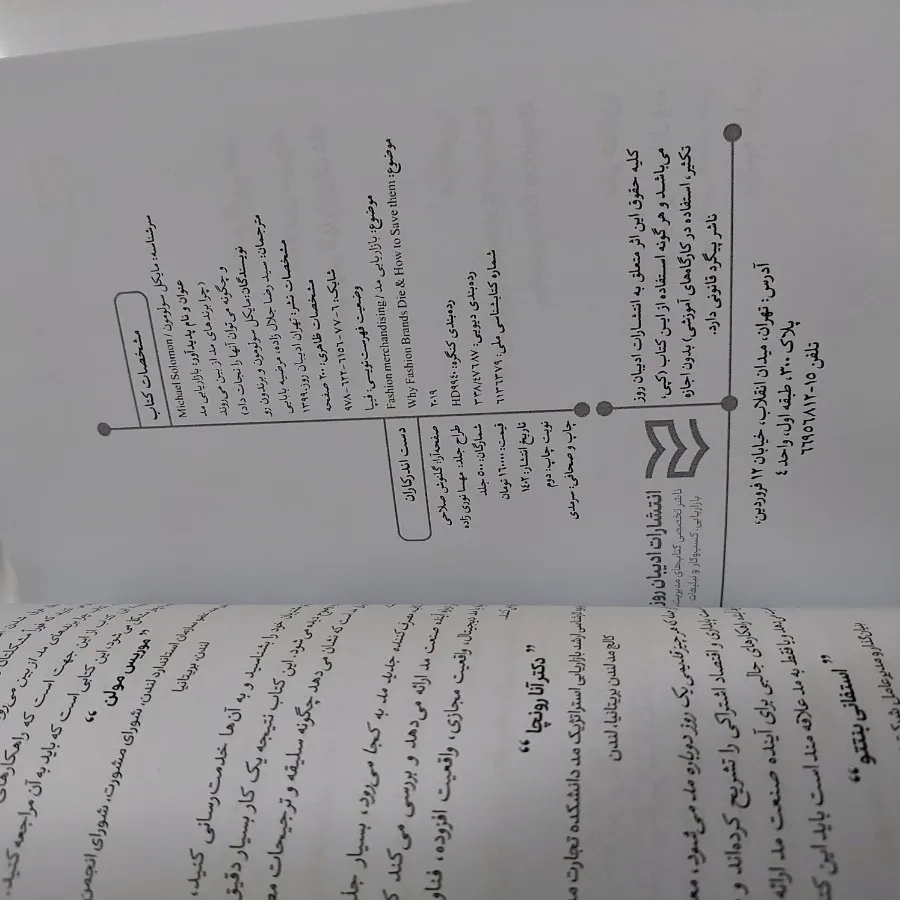 مشخصات کتاب
سرشناسه: مایکل سولومون / Michael Solomon
عنوان و نام پدیدآور: بازاریابی مد
(چرا برندهای مد از بین می‌روند
و چگونه می‌توان آنها را نجات داد)
نویسندگان: مایکل سولومون و برندمون رو
مترجمان: سید رضا جلال زاده، مرضیه بابایی
مشخصات نشر: تهران ادیبان روز، ۱۳۹۹
مشخصات ظاهری: ۲۰۰ صفحه
شابک: ۶-۷۷-۶۱۵۶-۶۲۲-۹۷۸
وضعیت فهرست‌نویسی: فیپا
موضوع: بازاریابی مد / Fashion merchandising
موضوع: Why Fashion Brands Die & How to Save them
رده‌بندی کنگره: HD۹۹۴۰
۲۰۱۹
رده‌بندی دیویی: ۳۳۸/۴۷۶۸۷
شماره کتابشناسی ملی: ۶۱۳۶۳۷۹
دست اندرکاران
صفحه‌آرا: گلنوش صلاحی
طراح جلد: مهسا نوری زاده
شمارگان: ۵۰۰ جلد
قیمت: ۱۶۰۰۰۰ تومان
تاریخ انتشار: ۱۴۰۲
نوبت چاپ: دوم
چاپ و صحافی: سرمدی
کلیه حقوق این اثر متعلق به انتشارات ادیبان روز
می‌باشد و هرگونه استفاده از این کتاب (کپی،
تکثیر، استفاده در کارگاه‌های آموزشی) بدون اجازه
ناشر پیگرد قانونی دارد.
انتشارات ادیبان روز
ناشر تخصصی کتاب‌های مدیریت،
بازاریابی، کسب‌وکار و تبلیغات
آدرس: تهران، میدان انقلاب، خیابان ۱۲ فروردین،
پلاک ۳۰۰، طبقه اول، واحد ۴
تلفن ۱۵-۶۶۹۵۶۸۱۲
این کتابی است که باید به آن مراجعه کنید.
” موریس مولن “
شورای مشورت، شورای انجمن
لندن، بریتانیا
را بشناسید و به آن‌ها خدمت رسانی کنید،
این کتاب نتیجه یک کار بسیار دقیق
نشان می‌دهد چگونه سلیقه و ترجیحات
جدید مد به کجا می‌رود، بسیار
صنعت مد ارائه می‌دهد و بررسی می‌کند
دیجیتال، واقعیت مجازی، واقعیت افزوده،
” دکتر آنا رونچا “
ارشد بازاریابی استراتژیک مد دانشکده تجارت مد
کالج مد لندن بریتانیا، لندن
هر چیز قدیمی یک روز دوباره مد می‌شود،
و اقتصاد اشتراکی را تشریح کرده‌اند و
راهکارهای جالبی برای آینده صنعت مد ارائه
فقط به مد علاقه مند است باید این
” استفانی بنتتو “